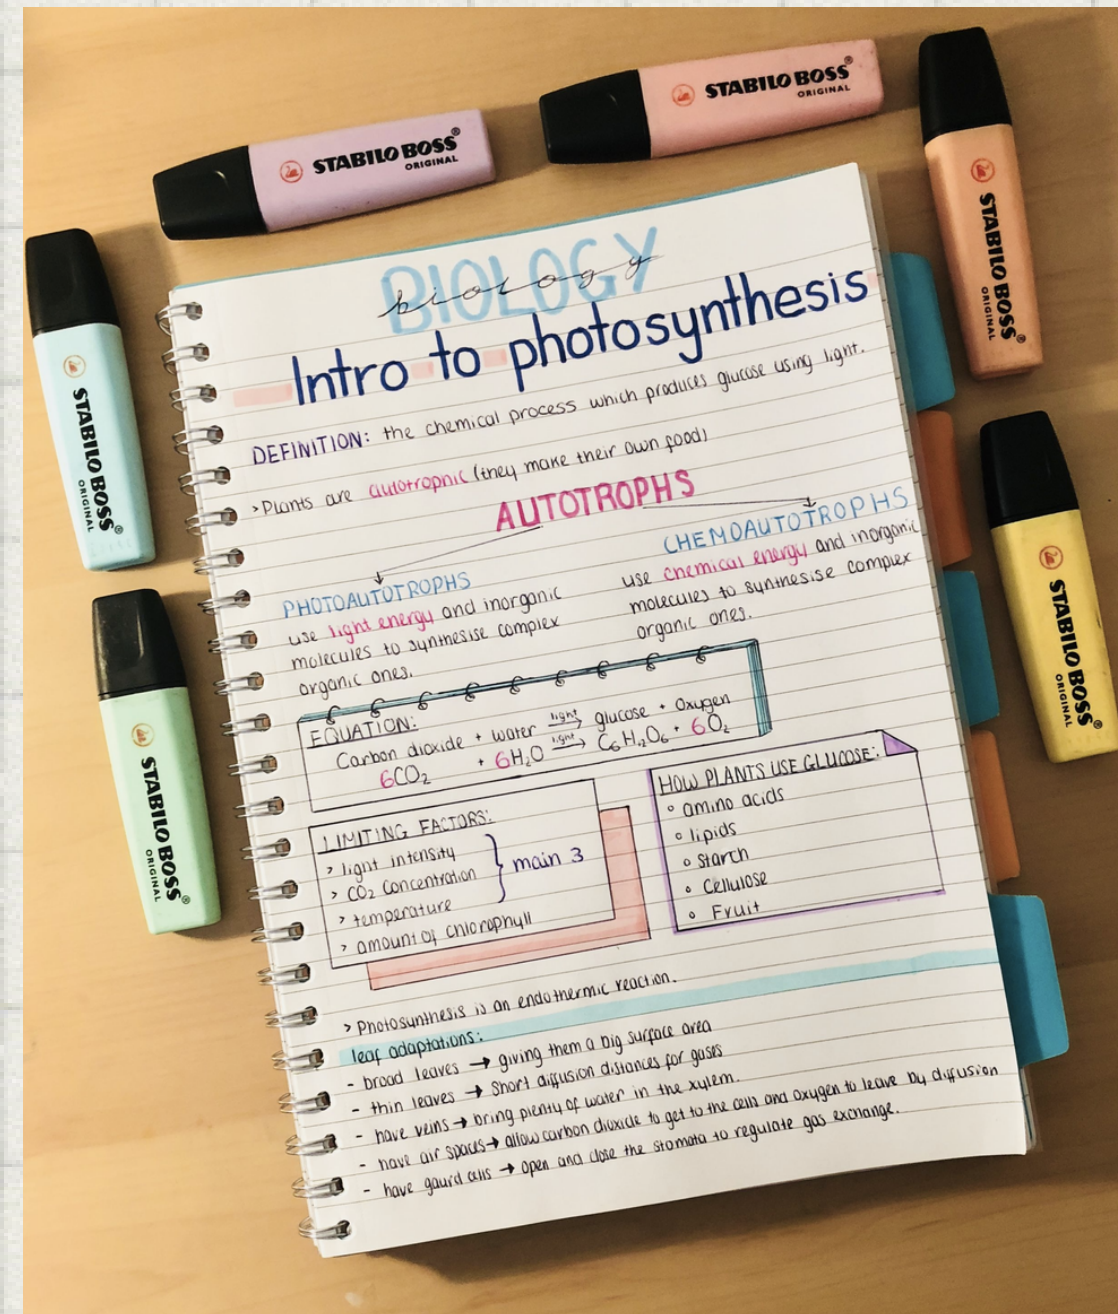 STABILO BOSS®
ORIGINAL
STABILO BOSS®
ORIGINAL
STABILO BOSS®
ORIGINAL
STABILO BOSS®
ORIGINAL
STABILO BOSS®
ORIGINAL
STABILO BOSS®
ORIGINAL
STABILO BOSS®
ORIGINAL
BIOLOGY
biology
Intro to photosynthesis
DEFINITION: the chemical process which produces glucose using light.
>Plants are autotrophic (they make their own food)
AUTOTROPHS
PHOTOAUTOTROPHS
use light energy and inorganic
molecules to synthesise complex
organic ones.
CHEMOAUTOTROPHS
use chemical energy and inorganic
molecules to synthesise complex
organic ones.
EQUATION:
Carbon dioxide + water light→ glucose + Oxygen
6CO₂ + 6H₂O light→ C₆H₁₂O₆ + 6O₂
LIMITING FACTORS:
> light intensity
> CO₂ concentration
> temperature
> amount of chlorophyll
} main 3
HOW PLANTS USE GLUCOSE:
° amino acids
° lipids
° starch
° Cellulose
° Fruit
> Photosynthesis is an endothermic reaction.
leaf adaptations:
- broad leaves → giving them a big surface area
- thin leaves → short diffusion distances for gases
- have veins → bring plenty of water in the xylem.
- have air spaces → allow carbon dioxide to get to the cells and oxygen to leave by diffusion
- have gaurd cells → open and close the stomata to regulate gas exchange.